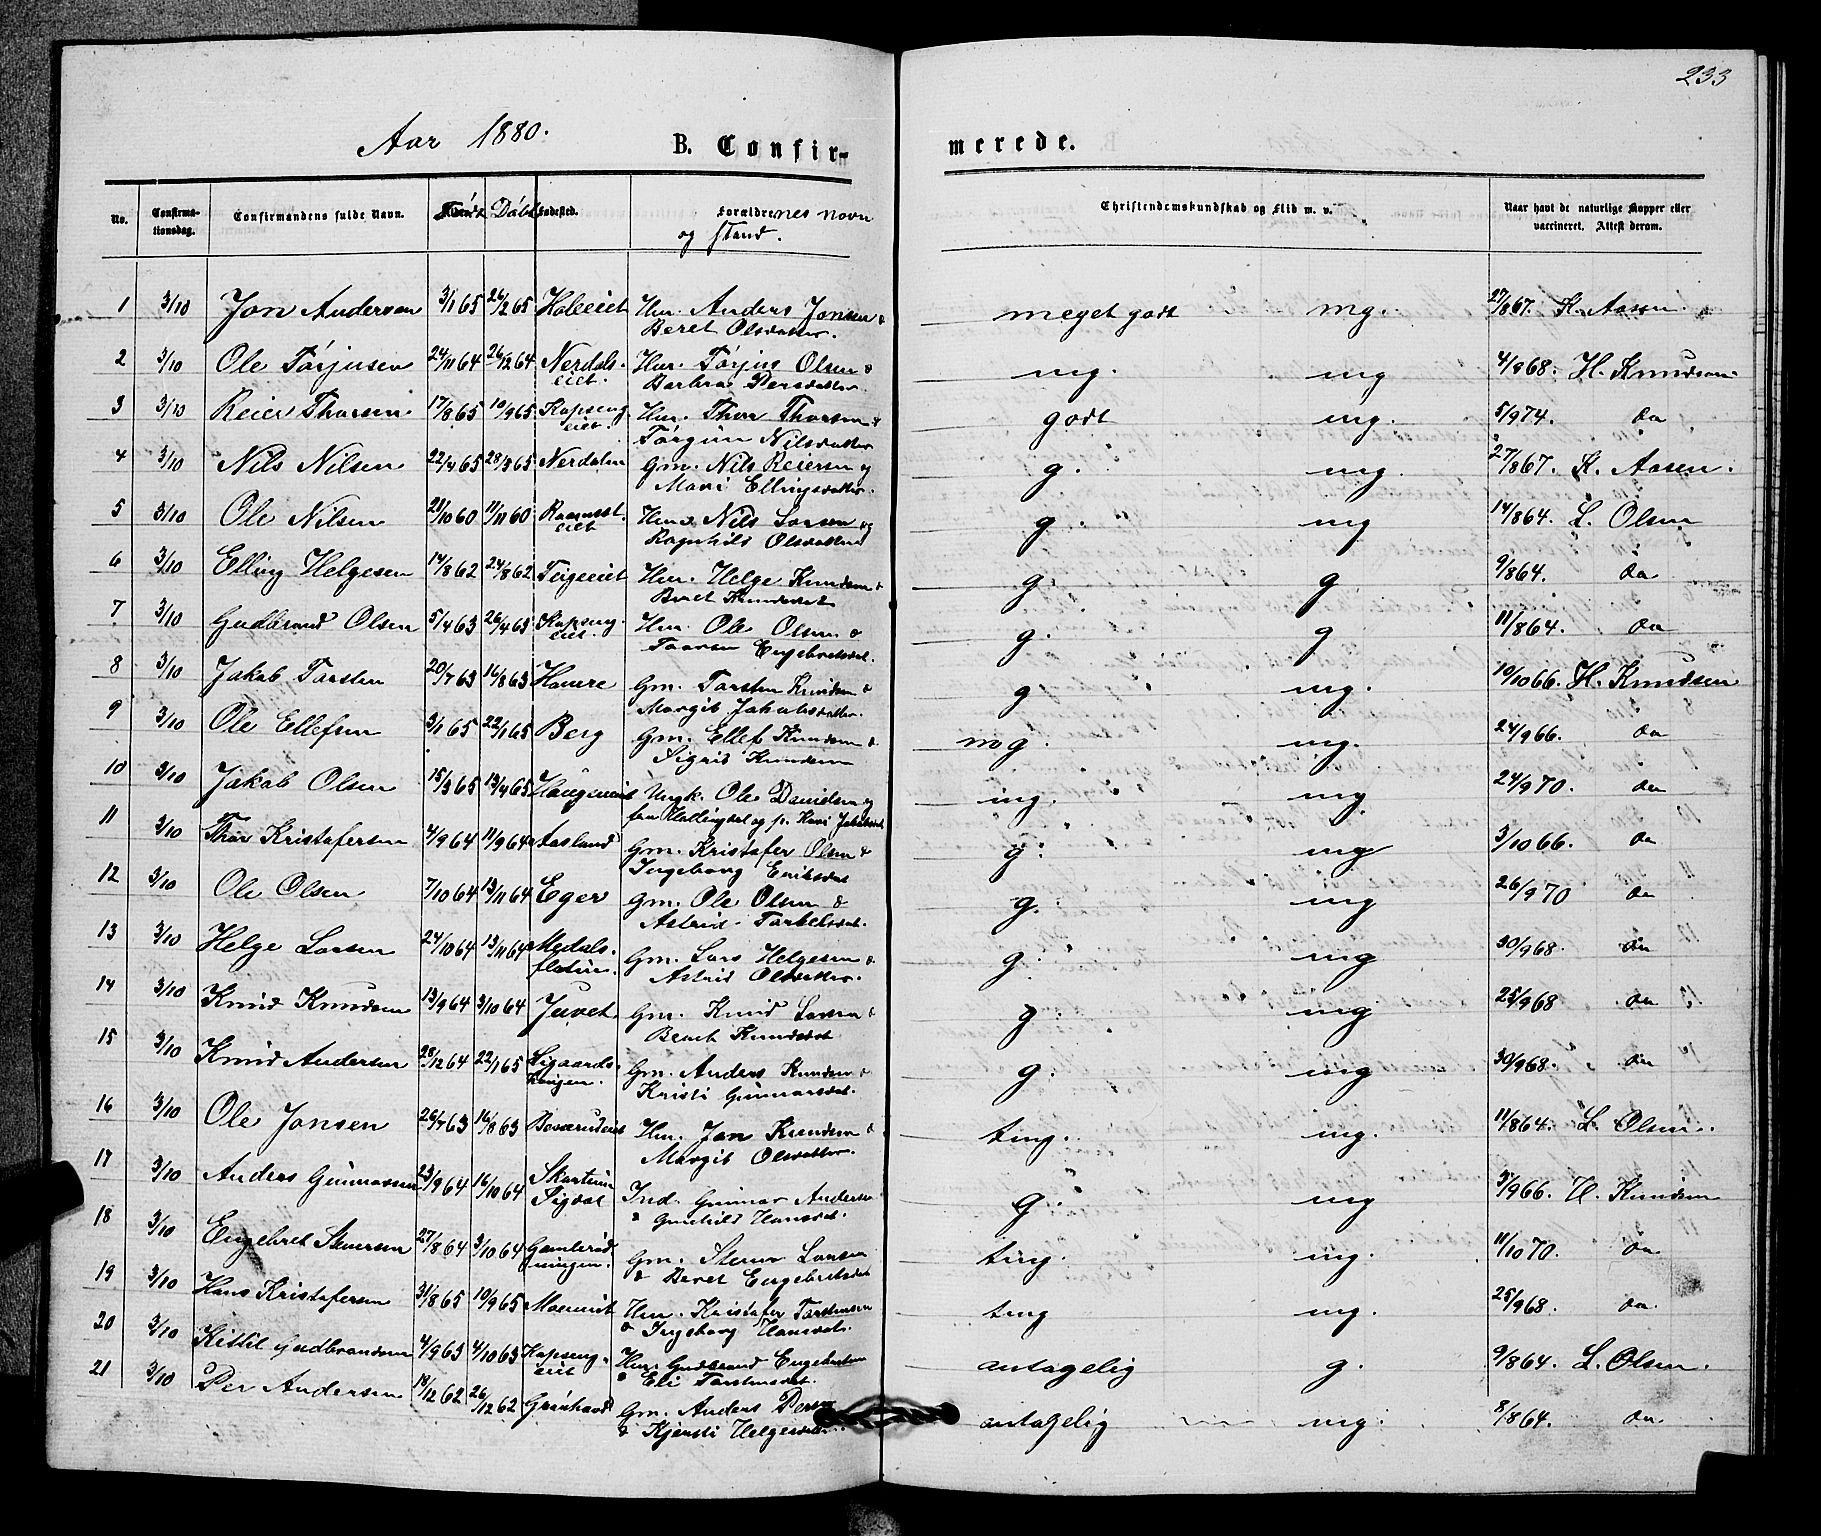 233
Aar 1880.
B. Confir-
merede.
No. Confirma-tionsdag. Confirmandens fulde Navn. Født Døbt Fødested. Forældrenes navn og stand. Christendomskundskab og Flid m. v. Naar havt de naturlige Kopper eller vaccineret. Attest derom.
1 3/10 Jon Andersen 3/1 65 26/2 65 Holeeiet Hm. Anders Jonsen & meget godt mg. 27/8 67. K. Aasen.
Beret Olsdatter.
2 3/10 Ole Torjusen 24/11 64 26/12 64 Nerdals- Hm. Torjus Olsen & mg. mg 4/9 68. H. Knudsen.
eiet. Barbra Persdatter
3 3/10 Reier Thorsen 17/8 65 10/9 65 Kopseng Hm. Thor Thorsen & godt mg. 5/9 74. da
eiet. Torgun Nilsdatter
4 3/10 Nils Nilsen 22/4 65 28/3 65 Nerdalen Gm. Nils Reiersen og g. mg. 27/8 67. K. Aasen.
Mari Ellingsdatter.
5 3/10 Ole Nilsen /10 60 11/11 60 eiet Nils Larsen og g. mg 14/8 64. L. Olsen
Ragnhild Olsdatter
6 3/10 Elling Helgesen 14/8 62 24/8 62 Teigeeiet Hm. Helge Knudsen & g. g 9/8 64. da
Beret Knudsdat
7 3/10 Gudbrand Olsen 5/4 63 26/4 63 Kopseng- Hm. Ole Olsen & g. g 11/8 64. da
eiet. Engebretsdat.
8 3/10 Jakob Torsten 20/7 63 16/8 63 Hovere Gm. Torsten Knudsen & g. mg. 10/10 66. H. Knudsen
Margit Jakobsdatter.
9 3/10 Ole Ellefsen 3/1 65 22/1 65 Berg Gm. Ellef Knudsen & mg. mg. 24/9 66. da
Sigrid Knudsen
10 3/10 Jakob Olsen 15/3 65 17/4 65 Haugeneiet Ungk. Ole Danielsen og mg. mg. 24/9 70. da
fra Hallingdal og p. Kari Jakobsdat
11 3/10 Thor Kristofersen 4/9 64 11/9 64 Aasland Gm. Kristofer Olsen & g. mg 3/10 66. da
Ingeborg Eriksdat
12 3/10 Ole Olsen 7/10 64 13/11 64 Eger Gm. Ole Olsen & g. mg 26/9 70 da
Astrid Torkelsdat.
13 3/10 Helge Larsen 24/10 64 13/11 64 Medals- Gm. Lars Helgesen & g. mg 30/9 68. da
floten. Astrid Olsdatter.
14 3/10 Knud Knudsen 13/9 64 3/10 64 Juvet Gm. Knud Larsen & g. mg 25/9 68 da
Knudsdat
15 3/10 Knud Andersen 28/12 64 22/1 65 Sigaards- Gm. Anders Knudsen & g. mg 30/9 68. da
haugen. Kristi Gunnarsdat.
16 3/10 Ole Jonsen 26/7 63 16/8 63 Hm. Jon Knudsen & tmg. mg. 11/8 64. L. Olsen.
Margit Olsdatter.
17 3/10 Anders Gunnarsen 23/9 64 16/10 64 Skartum Ind. Gunnar Andersen g. mg 3/9 66. H. Knudsen
Sigdal & Gunhild Hansdat.
18 3/10 Engebret Steinersen 27/8 64 3/10 64 Gamlerød- Gm. Steiner Larsen tmg. mg. 11/10 70. da
& Beret Engebretsdat
19 3/10 Hans Kristofersen 31/8 65 10/9 65 Moeneiet Hm. Kristofer Torstensen tmg mg. 25/9 68. da.
& Ingeborg Hansdat.
20 3/10 Kittil Gudbrandsen 4/9 63 4/10 63 Kopseng- Hm. Gudbrand Engebretsen antagelig g. 9/8 64. L. Olsen.
eiet & Eli Torstensdat.
21 3/10 Per Andersen 18/12 62 26/12 62 Grønhovd Gm. Anders Persen antagelig mg. 8/8 64. da.
& Kjersti Helgesdatter.